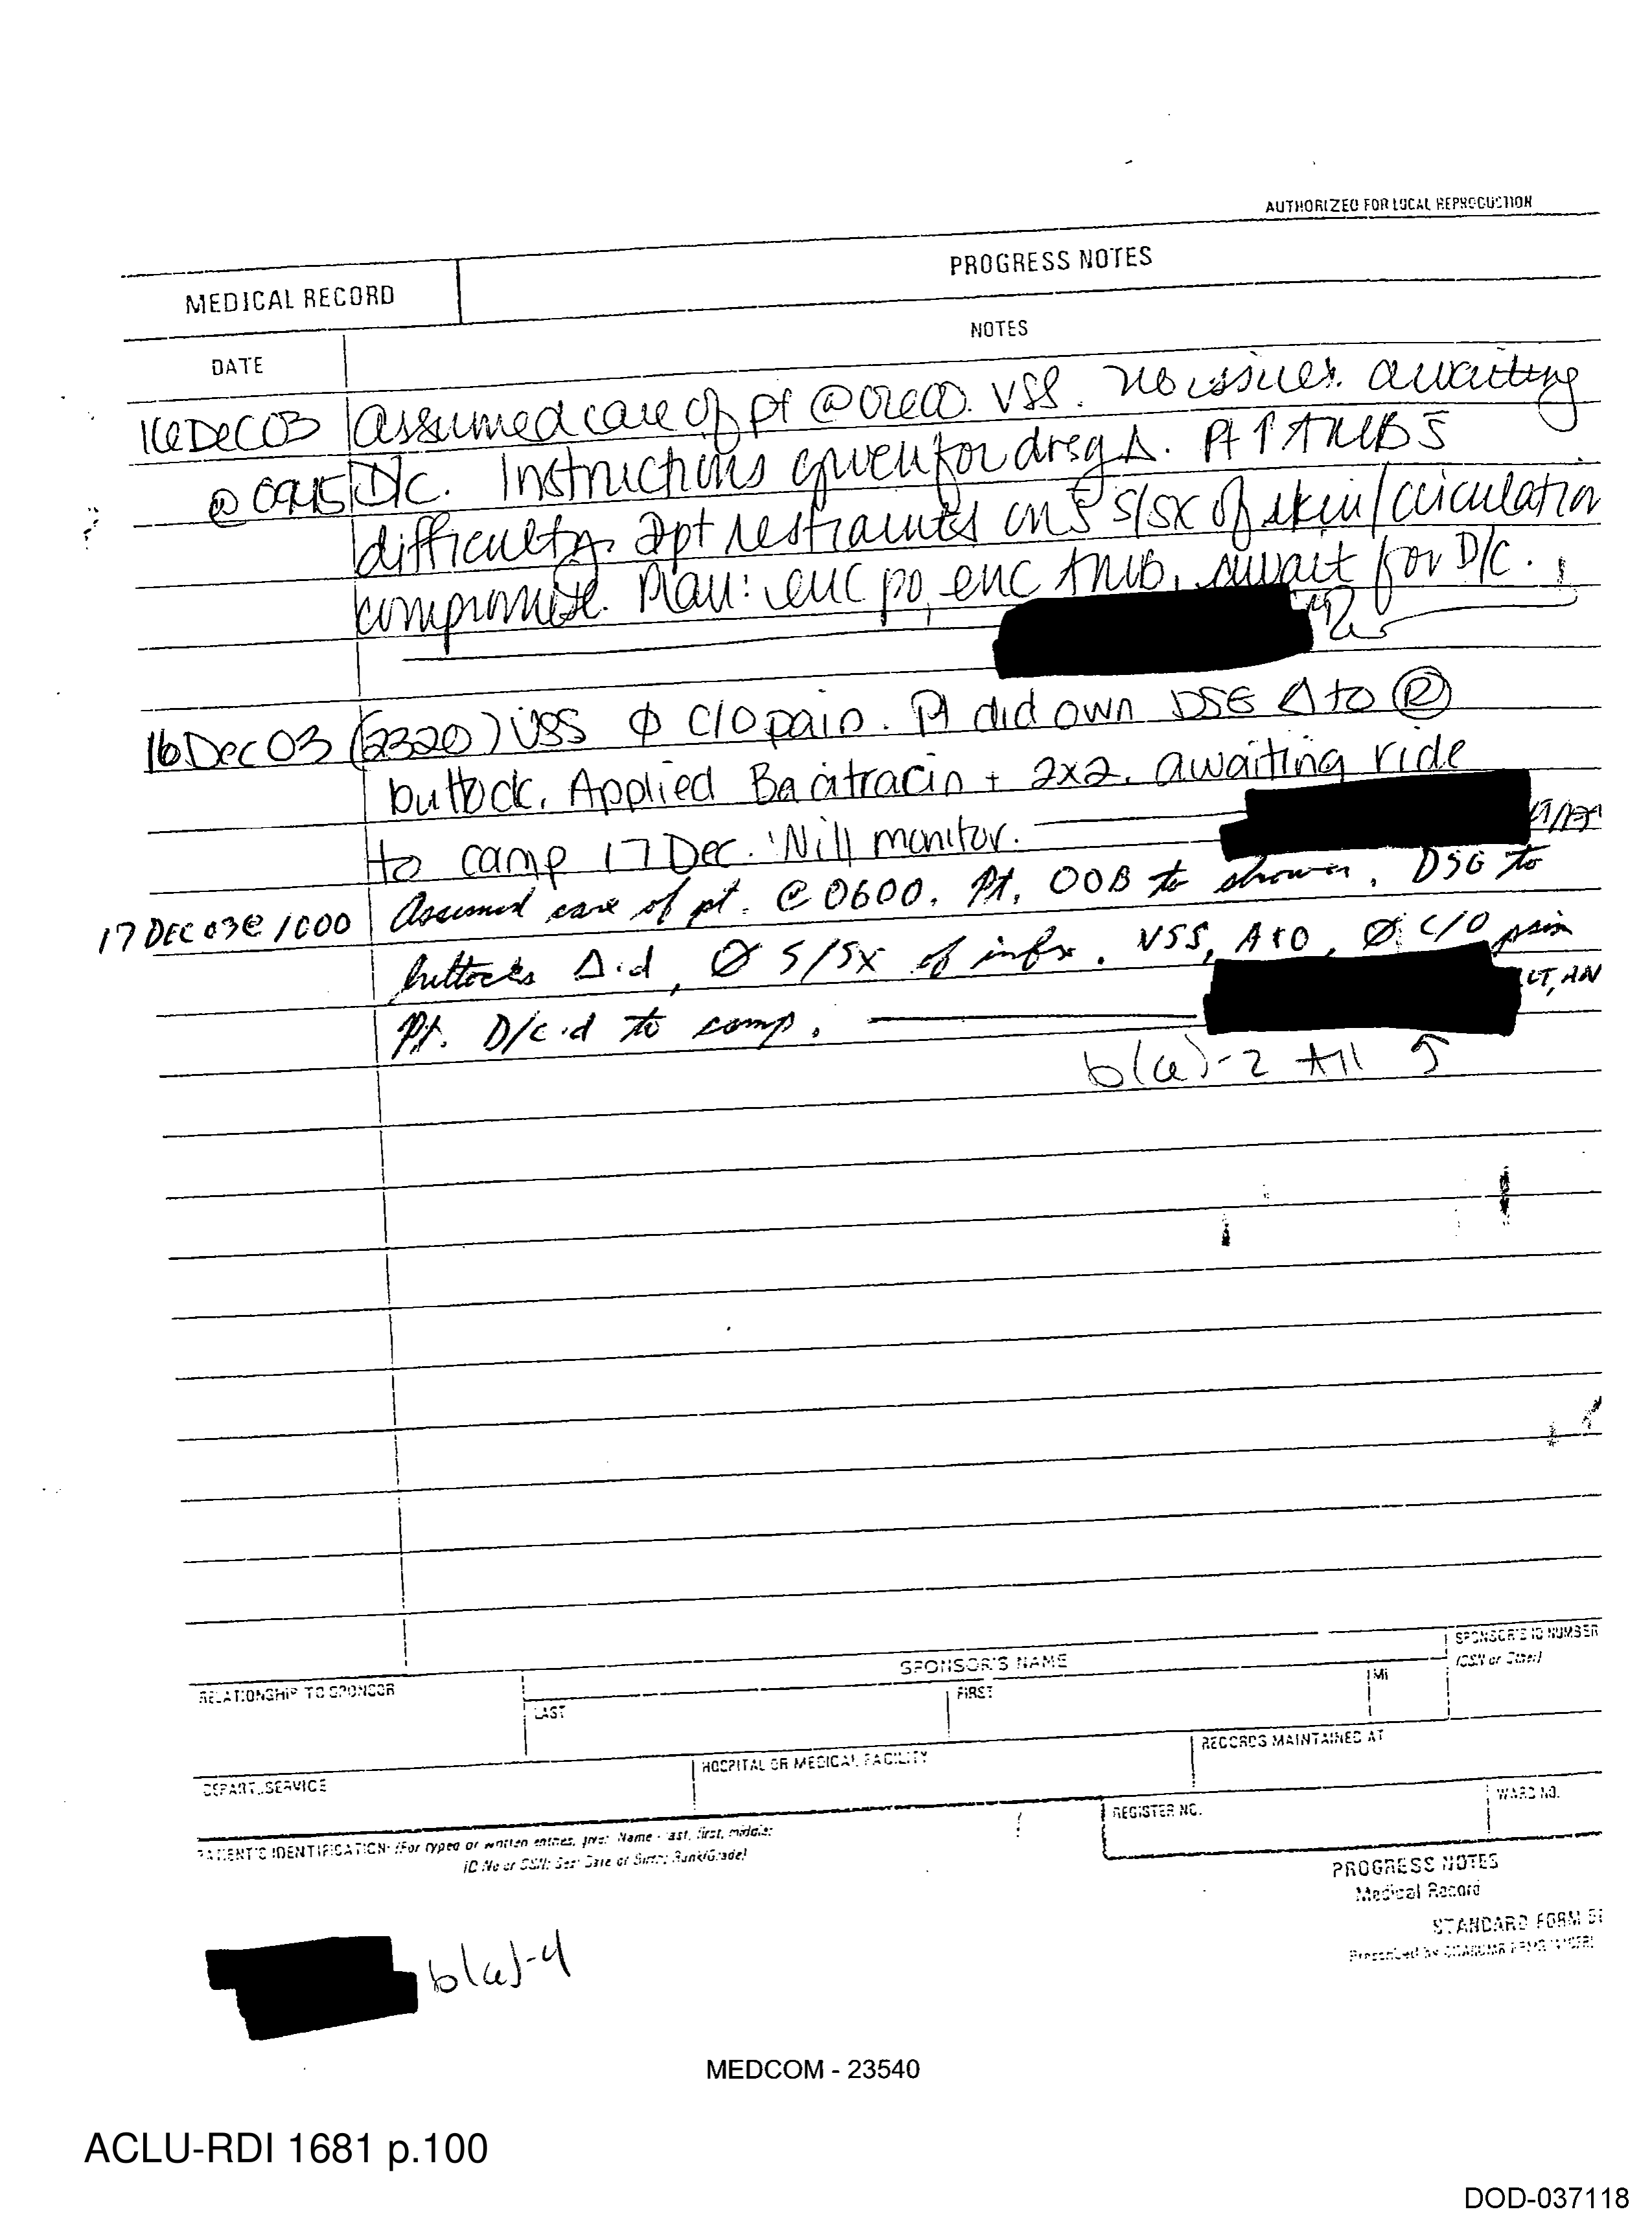 AUTHORIZED FOR LOCAL REPRODUCTION
MEDICAL RECORD
PROGRESS NOTES
DATE
NOTES
16Dec03 Assumed care of pt @ 0600. VSS. No issues. awaiting
@ 0945 D/C. Instructions given for drsg Δ. Pt ↑ AMB s̄
difficulty. 2pt restraints on s̄ s/sx of skin/circulation
compromise. Plan: enc po, enc amb, await for D/C.
16Dec03 (2320) VSS Ø C/O pain. Pt did own DSG Δ to Ⓡ
buttock. Applied Bacitracin + 2x2. awaiting ride
to camp 17 Dec. Will monitor.
17 DEC 03 @ 1000 Assumed care of pt. @ 0600. Pt. OOB to shower. DSG to
buttocks Δ'd, Ø S/SX of infx. VSS, A+O, Ø C/O pain
LT, AN
Pt. D/c'd to camp.
b(6)-2 All
RELATIONSHIP TO SPONSOR
SPONSOR'S NAME
SPONSOR'S ID NUMBER
(SSN or Other)
LAST
FIRST
MI
DEPART./SERVICE
HOSPITAL OR MEDICAL FACILITY
RECORDS MAINTAINED AT
PATIENT'S IDENTIFICATION: (For typed or written entries, give: Name - last, first, middle;
ID No or SSN; Sex; Date of Birth; Rank/Grade)
REGISTER NO.
WARD NO.
PROGRESS NOTES
Medical Record
STANDARD FORM
b(6)-4
MEDCOM - 23540
ACLU-RDI 1681 p.100
DOD-037118